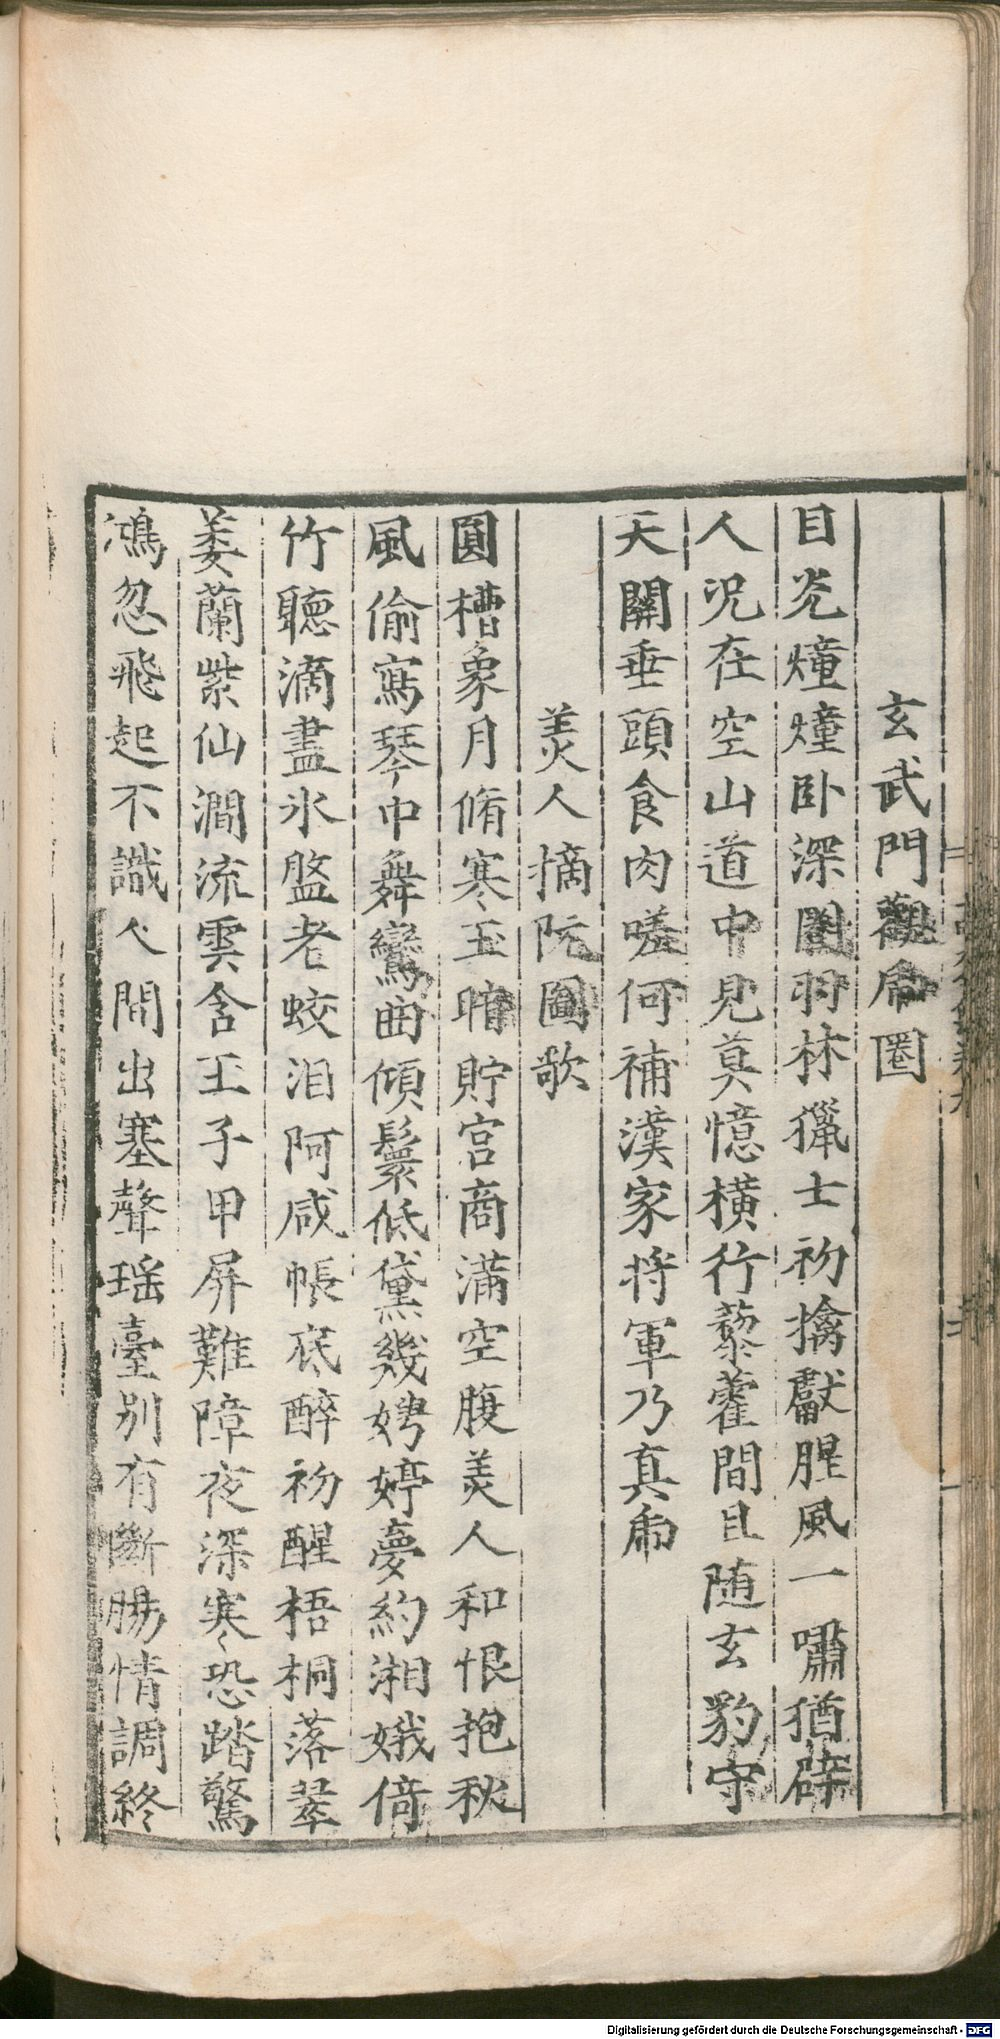 玄武門觀虎圈
目光燑燑卧深圈羽林獵士初擒獻腥風一嘯猶辟
人况在空山道中見莫憶橫行藜藿間且随玄豹守
天關垂頭食肉嗟何補漢家将軍乃真虎
美人摘阮圖歌
圓槽象月脩寒玉暗貯宮商滿空腹美人和恨抱秋
風偷寫琴中舞鸞曲傾鬟低黛幾娉婷夢約湘娥倚
竹聽滴盡氷盤老蛟泪阿咸帳底醉初醒梧桐落翠
萎蘭紫仙澗流雲含玉子甲屏難障夜深寒恐踏驚
鴻忽飛起不識人間出塞聲瑶臺别有斷腸情調終
Digitalisierung gefördert durch die Deutsche Forschungsgemeinschaft - DFG